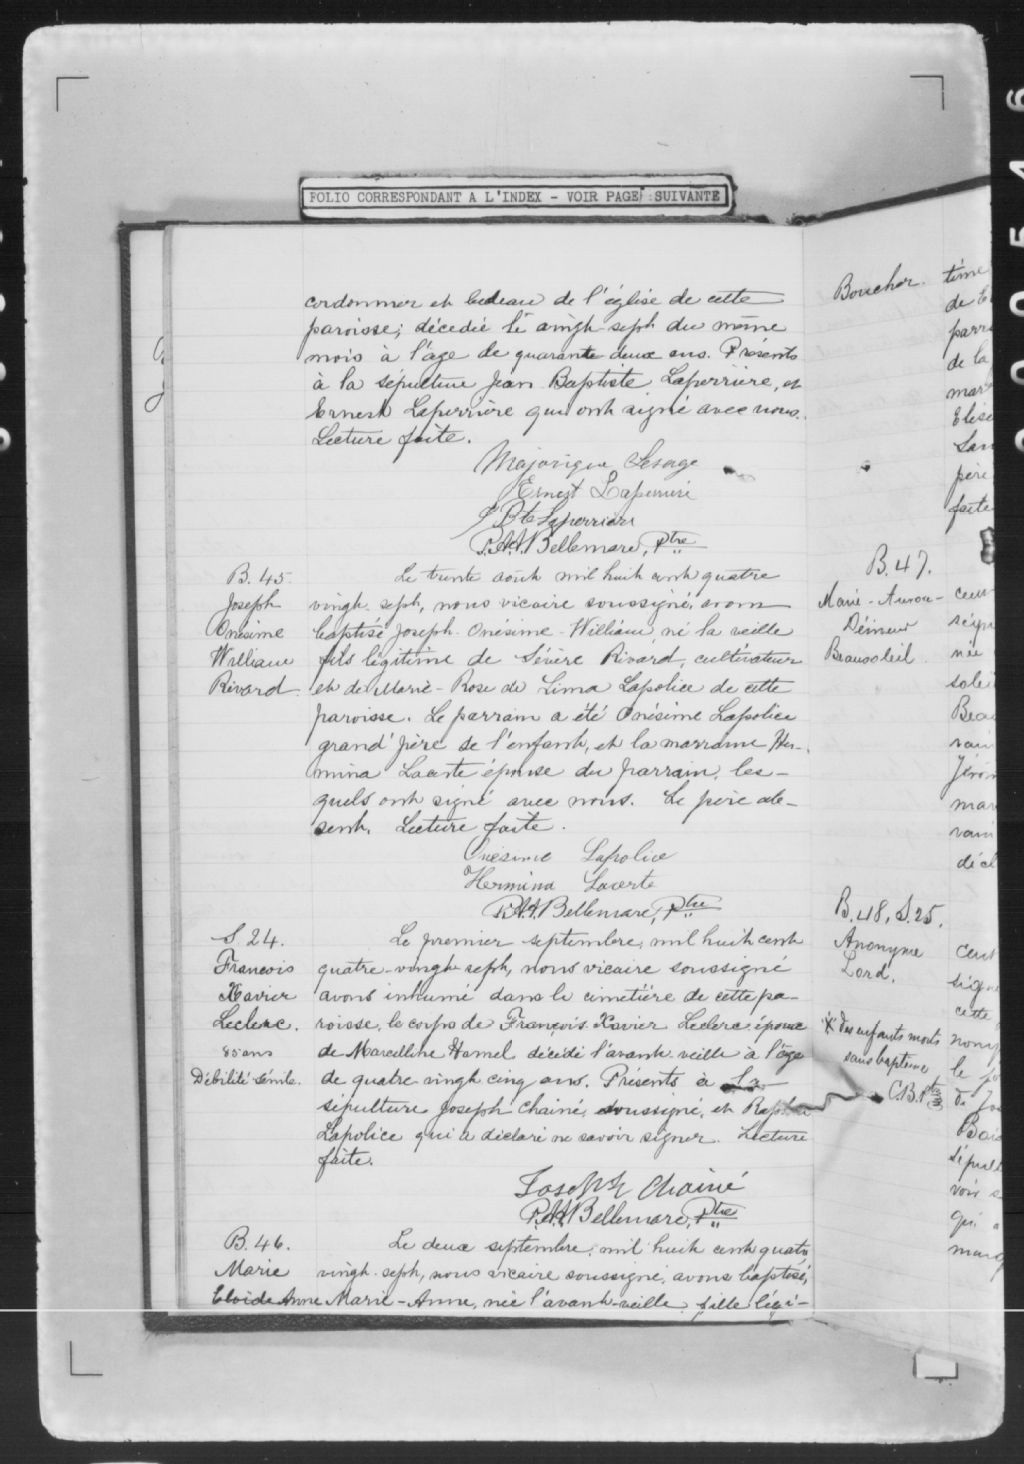 FOLIO CORRESPONDANT A L'INDEX - VOIR PAGE SUIVANTE
cordonnier et bedeau de l'église de cette
paroisse; décédé le vingt-sept du même
mois à l'âge de quarante deux ans. Présents
à la sépulture Jean Baptiste Laperrière, et
Ernest Laperrière qui ont signé avec nous.
Lecture faite.
Majorique Lesage
Ernest Laperrière
J Bte Laperrière
Bellemare, Ptre
B. 45
Joseph
Onésime
William
Rivard
Le trente août mil huit cent quatre
vingt-sept, nous vicaire soussigné, avons
baptisé Joseph-Onésime-William, né la veille
fils légitime de Sévère Rivard, cultivateur
et de Marie-Rose de Lima Lapolice de cette
paroisse. Le parrain a été Onésime Lapolice
grand'père de l'enfant, et la marraine Her-
mina Lacerte épouse du parrain, les-
quels ont signé avec nous. Le père ab-
sent. Lecture faite.
Onésime Lapolice
Hermina Lacerte
Bellemare, Ptre
S. 24.
François
Xavier
Leclerc.
85 ans
Débilité sénile.
Le premier septembre, mil huit cent
quatre-vingt sept, nous vicaire soussigné
avons inhumé dans le cimetière de cette pa-
roisse, le corps de François-Xavier Leclerc époux
de Marcelline Hamel décédé l'avant-veille à l'âge
de quatre vingt cinq ans. Présents à la
sépulture Joseph Chainé, soussigné, et
Lapolice qui a déclaré ne savoir signer. Lecture
faite.
Joseph Chainé
Bellemare, Ptre
B. 46.
Marie
Anne
Le deux septembre, mil huit cent quatre
vingt-sept, nous vicaire soussigné, avons baptisé,
Marie-Anne, née l'avant-veille, fille légi-
Boucher
B. 47.
Marie-Aurore-
Beausoleil
B. 48, S. 25.
Anonyme
Lord.
* des enfants morts
sans baptême
C.B. Ptre
time
de
parr
de la
mar
Elise
père
faite
née
Beau
mar
décl
cent
sign
cette
le
de
Bois
sépul
voir
qui
marq